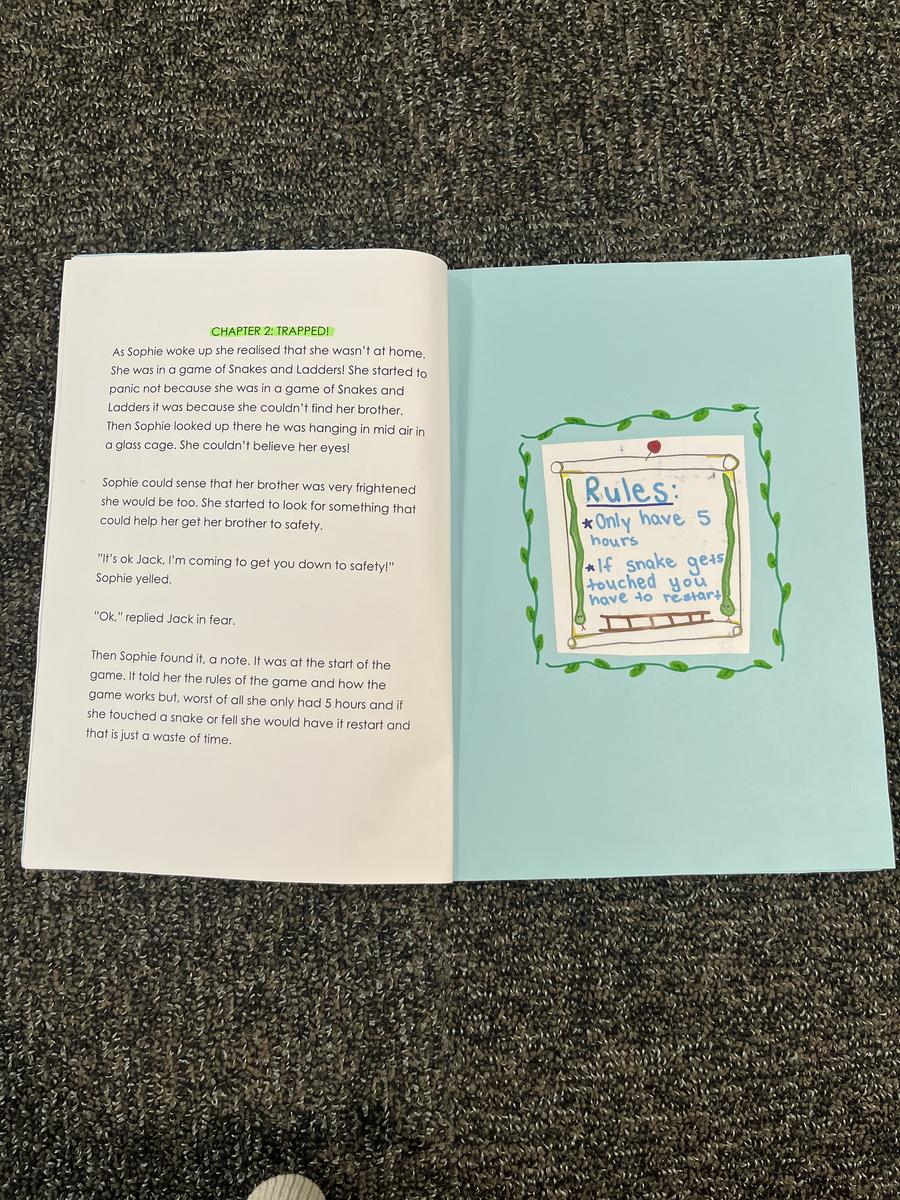 CHAPTER 2: TRAPPED!
As Sophie woke up she realised that she wasn't at home.
She was in a game of Snakes and Ladders! She started to
panic not because she was in a game of Snakes and
Ladders it was because she couldn't find her brother.
Then Sophie looked up there he was hanging in mid air in
a glass cage. She couldn't believe her eyes!
Sophie could sense that her brother was very frightened
she would be too. She started to look for something that
could help her get her brother to safety.
"It's ok Jack, I'm coming to get you down to safety!"
Sophie yelled.
"Ok," replied Jack in fear.
Then Sophie found it, a note. It was at the start of the
game. It told her the rules of the game and how the
game works but, worst of all she only had 5 hours and if
she touched a snake or fell she would have it restart and
that is just a waste of time.
Rules:
★Only have 5
hours
★If snake gets
touched you
have to restart